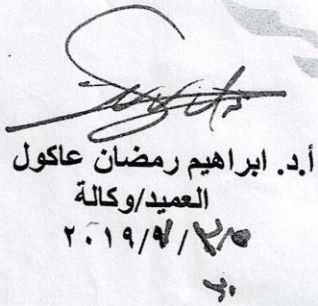 أ.د. ابراهيم رمضان عاكول
العميد/وكالة
٢٠١٩/٩/